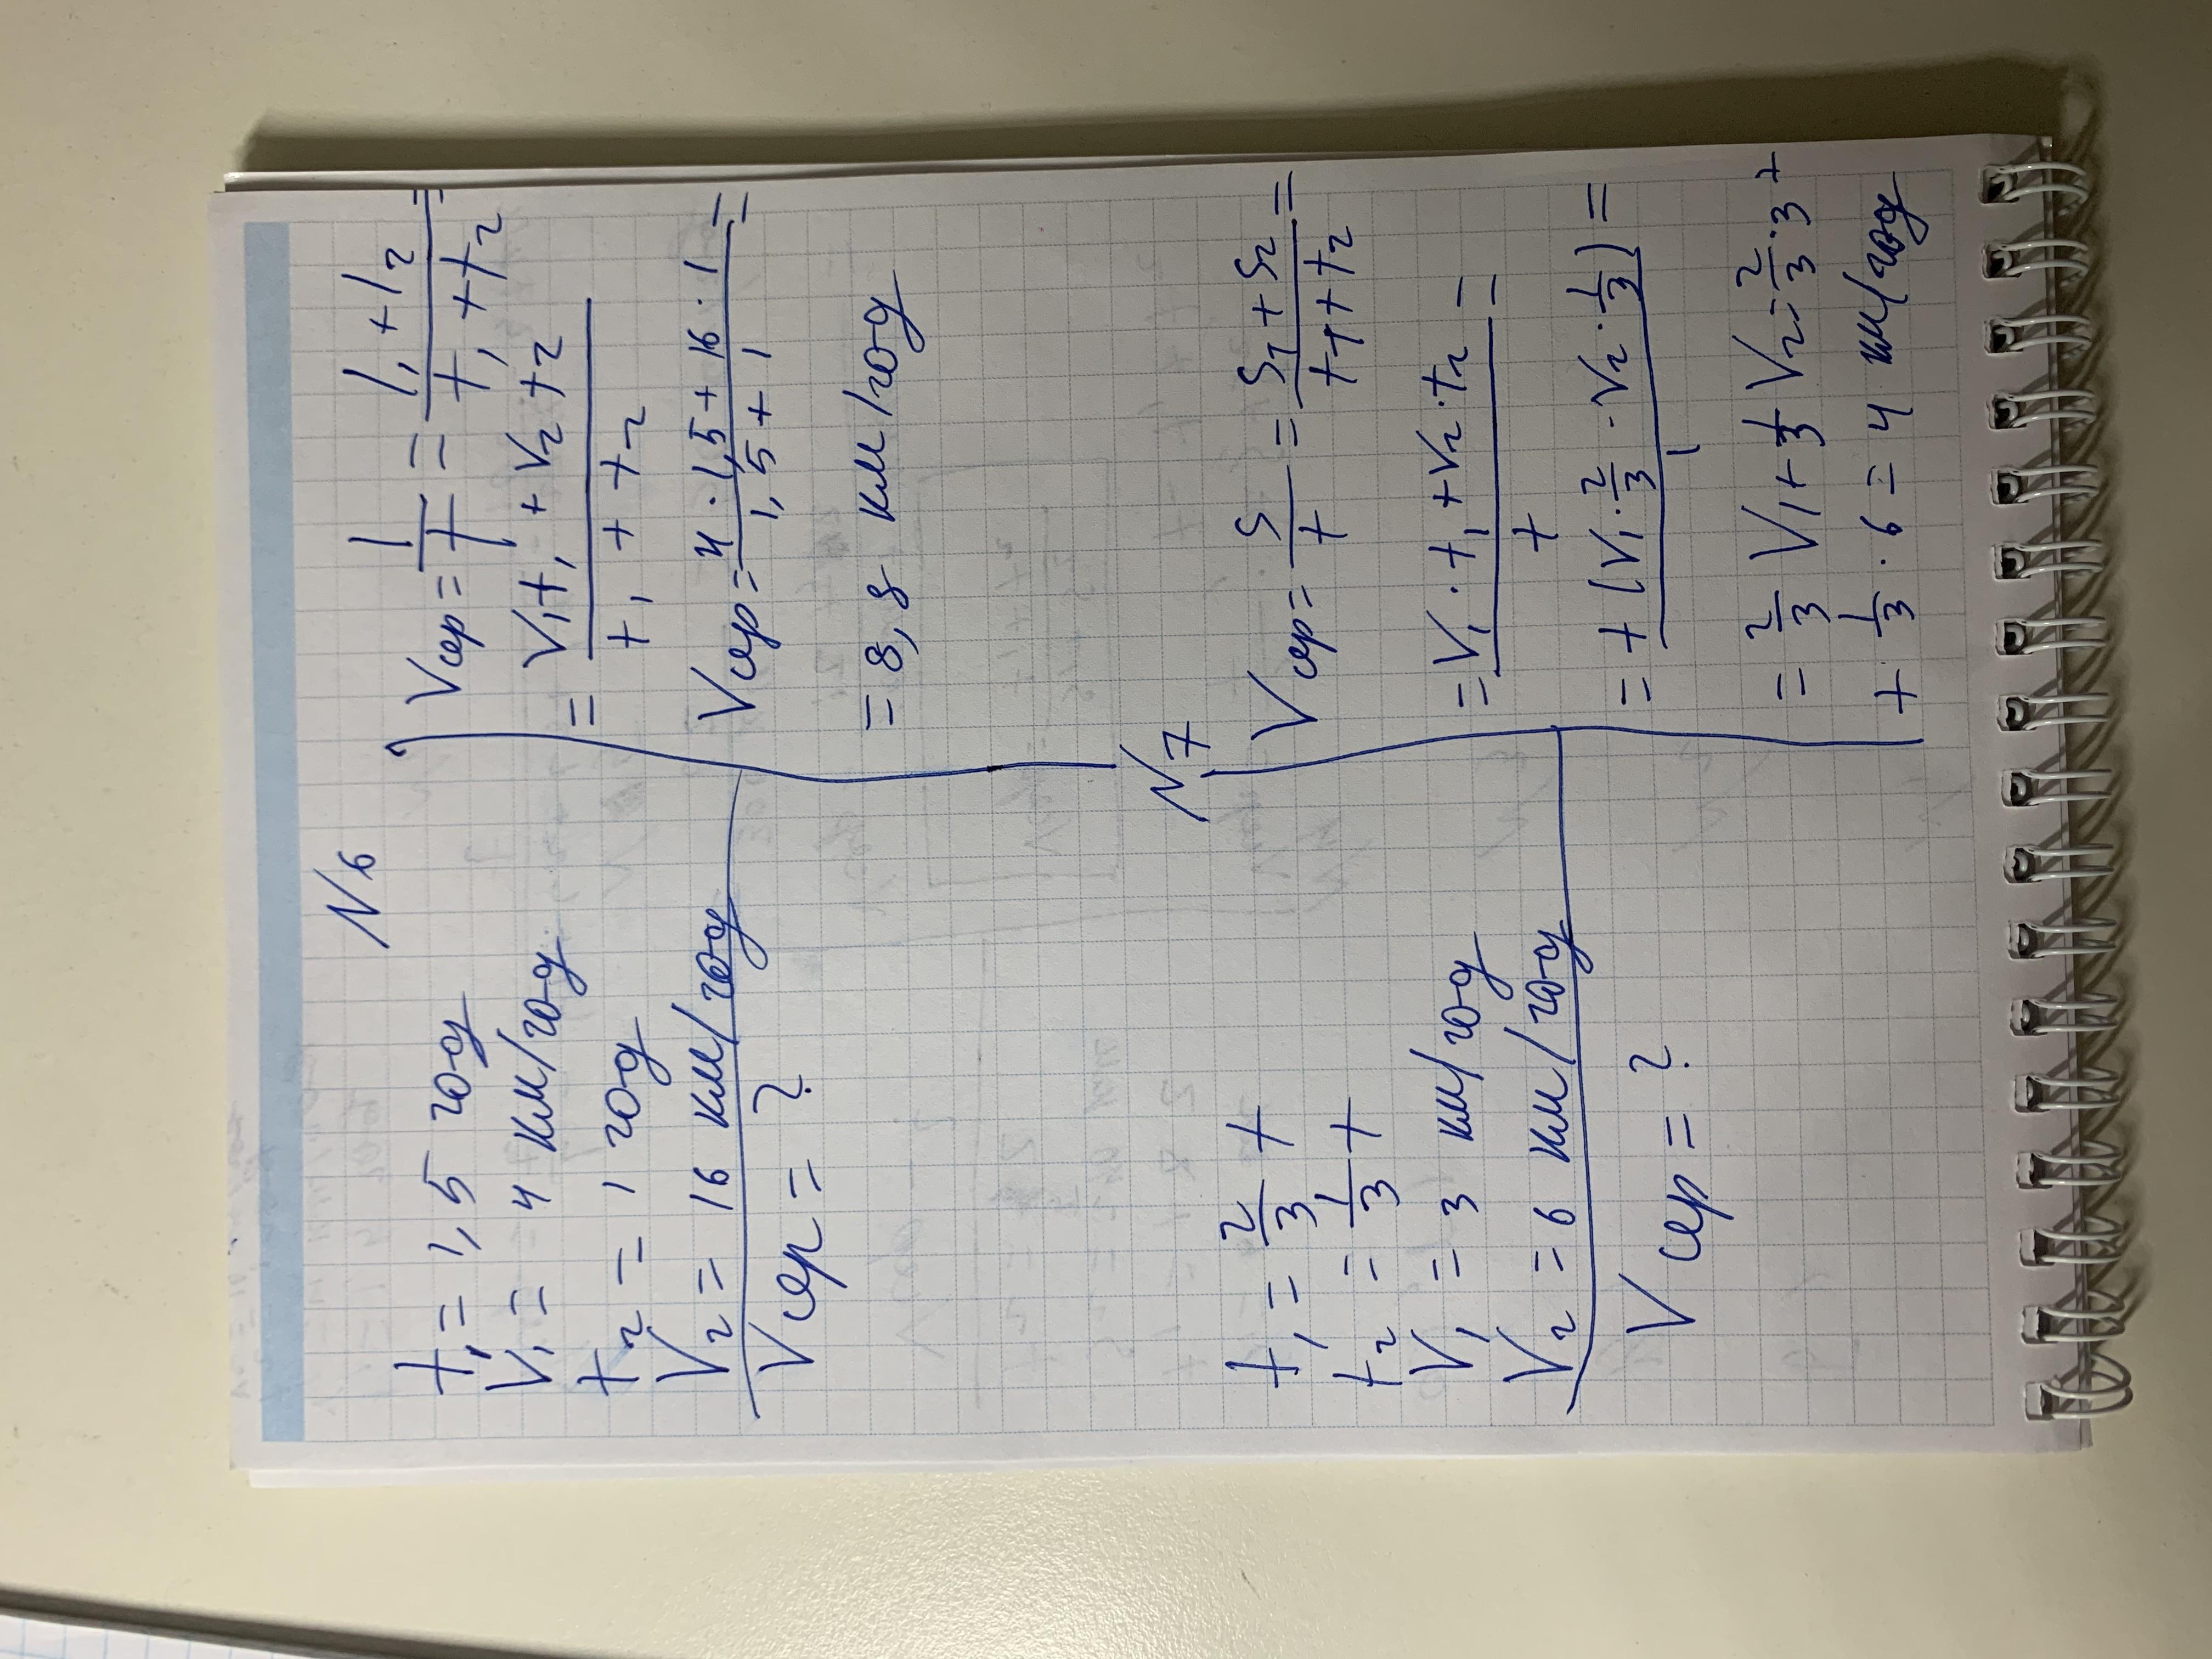 N6
t₁ = 1,5 год
V₁ = 4 км/год
t₂ = 1 год
V₂ = 16 км/год
Vсер = ?
Vсер = l/t = (l₁ + l₂)/(t₁ + t₂) =
= (V₁t₁ + V₂t₂)/(t₁ + t₂)
Vсер = (4 · 1,5 + 16 · 1)/(1,5 + 1) =
= 8,8 км/год
N7
t₁ = 2/3 t
t₂ = 1/3 t
V₁ = 3 км/год
V₂ = 6 км/год
Vсер = ?
Vсер = S/t = (S₁ + S₂)/(t₁ + t₂) =
= (V₁ · t₁ + V₂ · t₂)/t =
= t (V₁ · 2/3 · V₂ · 1/3)/t =
= 2/3 V₁ + 1/3 V₂ = 2/3 · 3 +
+ 1/3 · 6 = 4 км/год